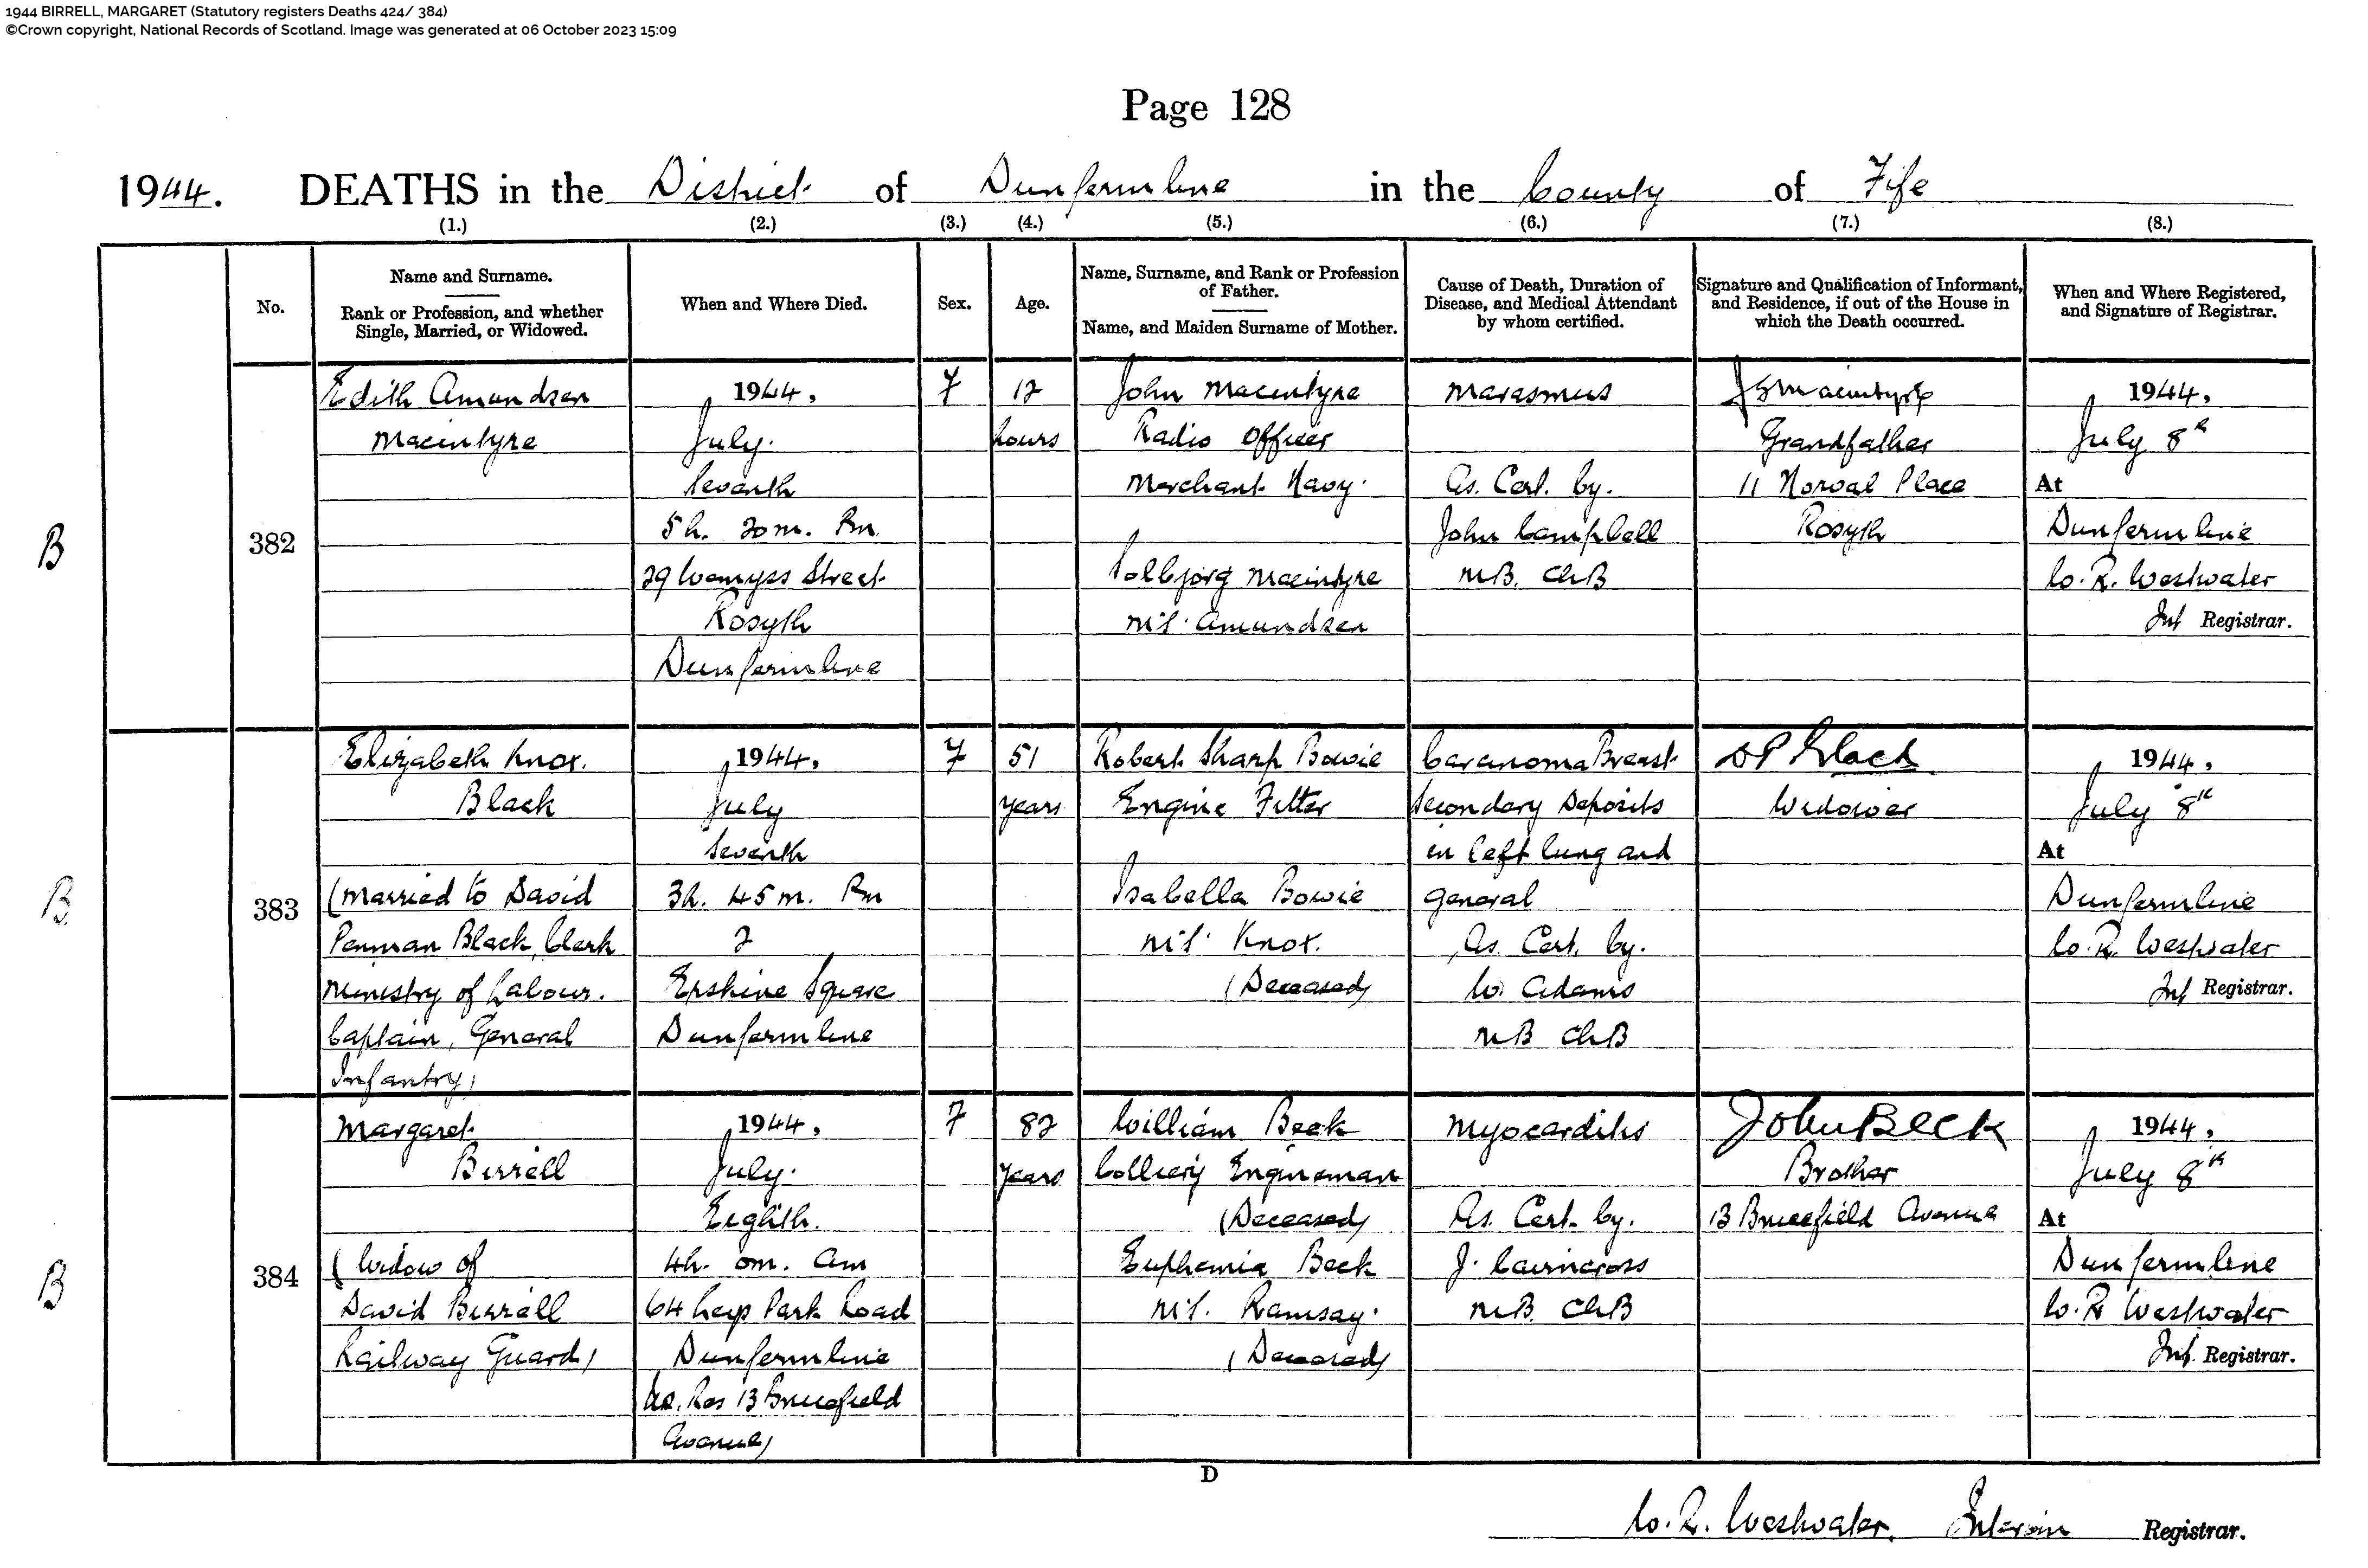 1944 BIRRELL, MARGARET (Statutory registers Deaths 424/ 384)
©Crown copyright, National Records of Scotland. Image was generated at 06 October 2023 15:09
Page 128
1944. DEATHS in the District of Dunfermline in the County of Fife
(1.) (2.) (3.) (4.) (5.) (6.) (7.) (8.)
No.
Name and Surname.
Rank or Profession, and whether
Single, Married, or Widowed.
When and Where Died.
Sex.
Age.
Name, Surname, and Rank or Profession
of Father.
Name, and Maiden Surname of Mother.
Cause of Death, Duration of
Disease, and Medical Attendant
by whom certified.
Signature and Qualification of Informant,
and Residence, if out of the House in
which the Death occurred.
When and Where Registered,
and Signature of Registrar.
B
382
Edith Amundsen
Macintyre
1944,
July.
Seventh
5h. 20m. Pm
29 Wemyss Street
Rosyth
Dunfermline
F
12
hours
John Macintyre
Radio Officer
Merchant Navy.
Macintyre
m.s. Amundsen
Marasmus
As. Cert. by.
John Campbell
M.B. ChB
J S Macintyre
Grandfather
11 Norval Place
Rosyth
1944,
July 8th
At
Dunfermline
W. R. Westwater
Int Registrar.
B
383
Elizabeth Knox.
Black
(Married to David
Penman Black, Clerk
Ministry of Labour.
Captain, General
Infantry)
1944,
July
Seventh
3h. 45m. Pm
2
Erskine Square
Dunfermline
F
51
years
Robert Sharp Bowie
Engine Fitter
Isabella Bowie
m.s. Knox.
(Deceased)
Carcinoma Breast
Secondary Deposits
in left lung and
general
As. Cert. by.
W. Adams
MB ChB
D P Black
Widower
1944,
July 8th
At
Dunfermline
W. R. Westwater
Int Registrar.
B
384
Margaret
Birrell
(Widow of
David Birrell
Railway Guard)
1944,
July.
Eighth.
4h. 0m. Am
64 Leys Park Road
Dunfermline
Us. Res 13 Brucefield
Avenue)
F
82
years
William Beck
Colliery Engineman
(Deceased)
Euphemia Beck
m.s. Ramsay.
(Deceased)
Myocarditis
As. Cert. by.
J. Cairncross
M.B. ChB
John Beck
Brother
13 Brucefield Avenue
1944,
July 8th
At
Dunfermline
W. R Westwater
Int. Registrar.
D
W. R. Westwater. Interim Registrar.